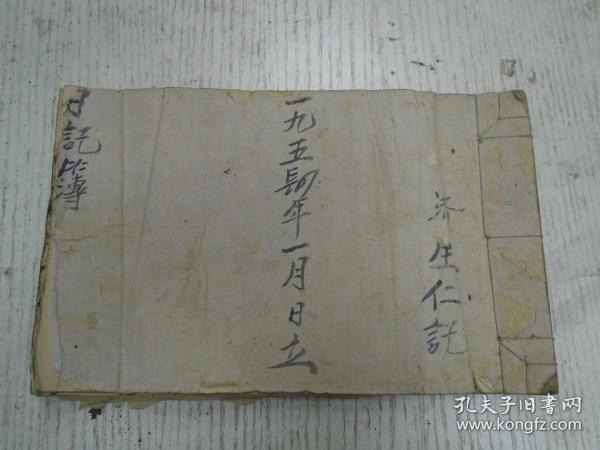 济生仁記
一九五肆年一月日立
日記簿
孔夫子旧书网
www.kongfz.com